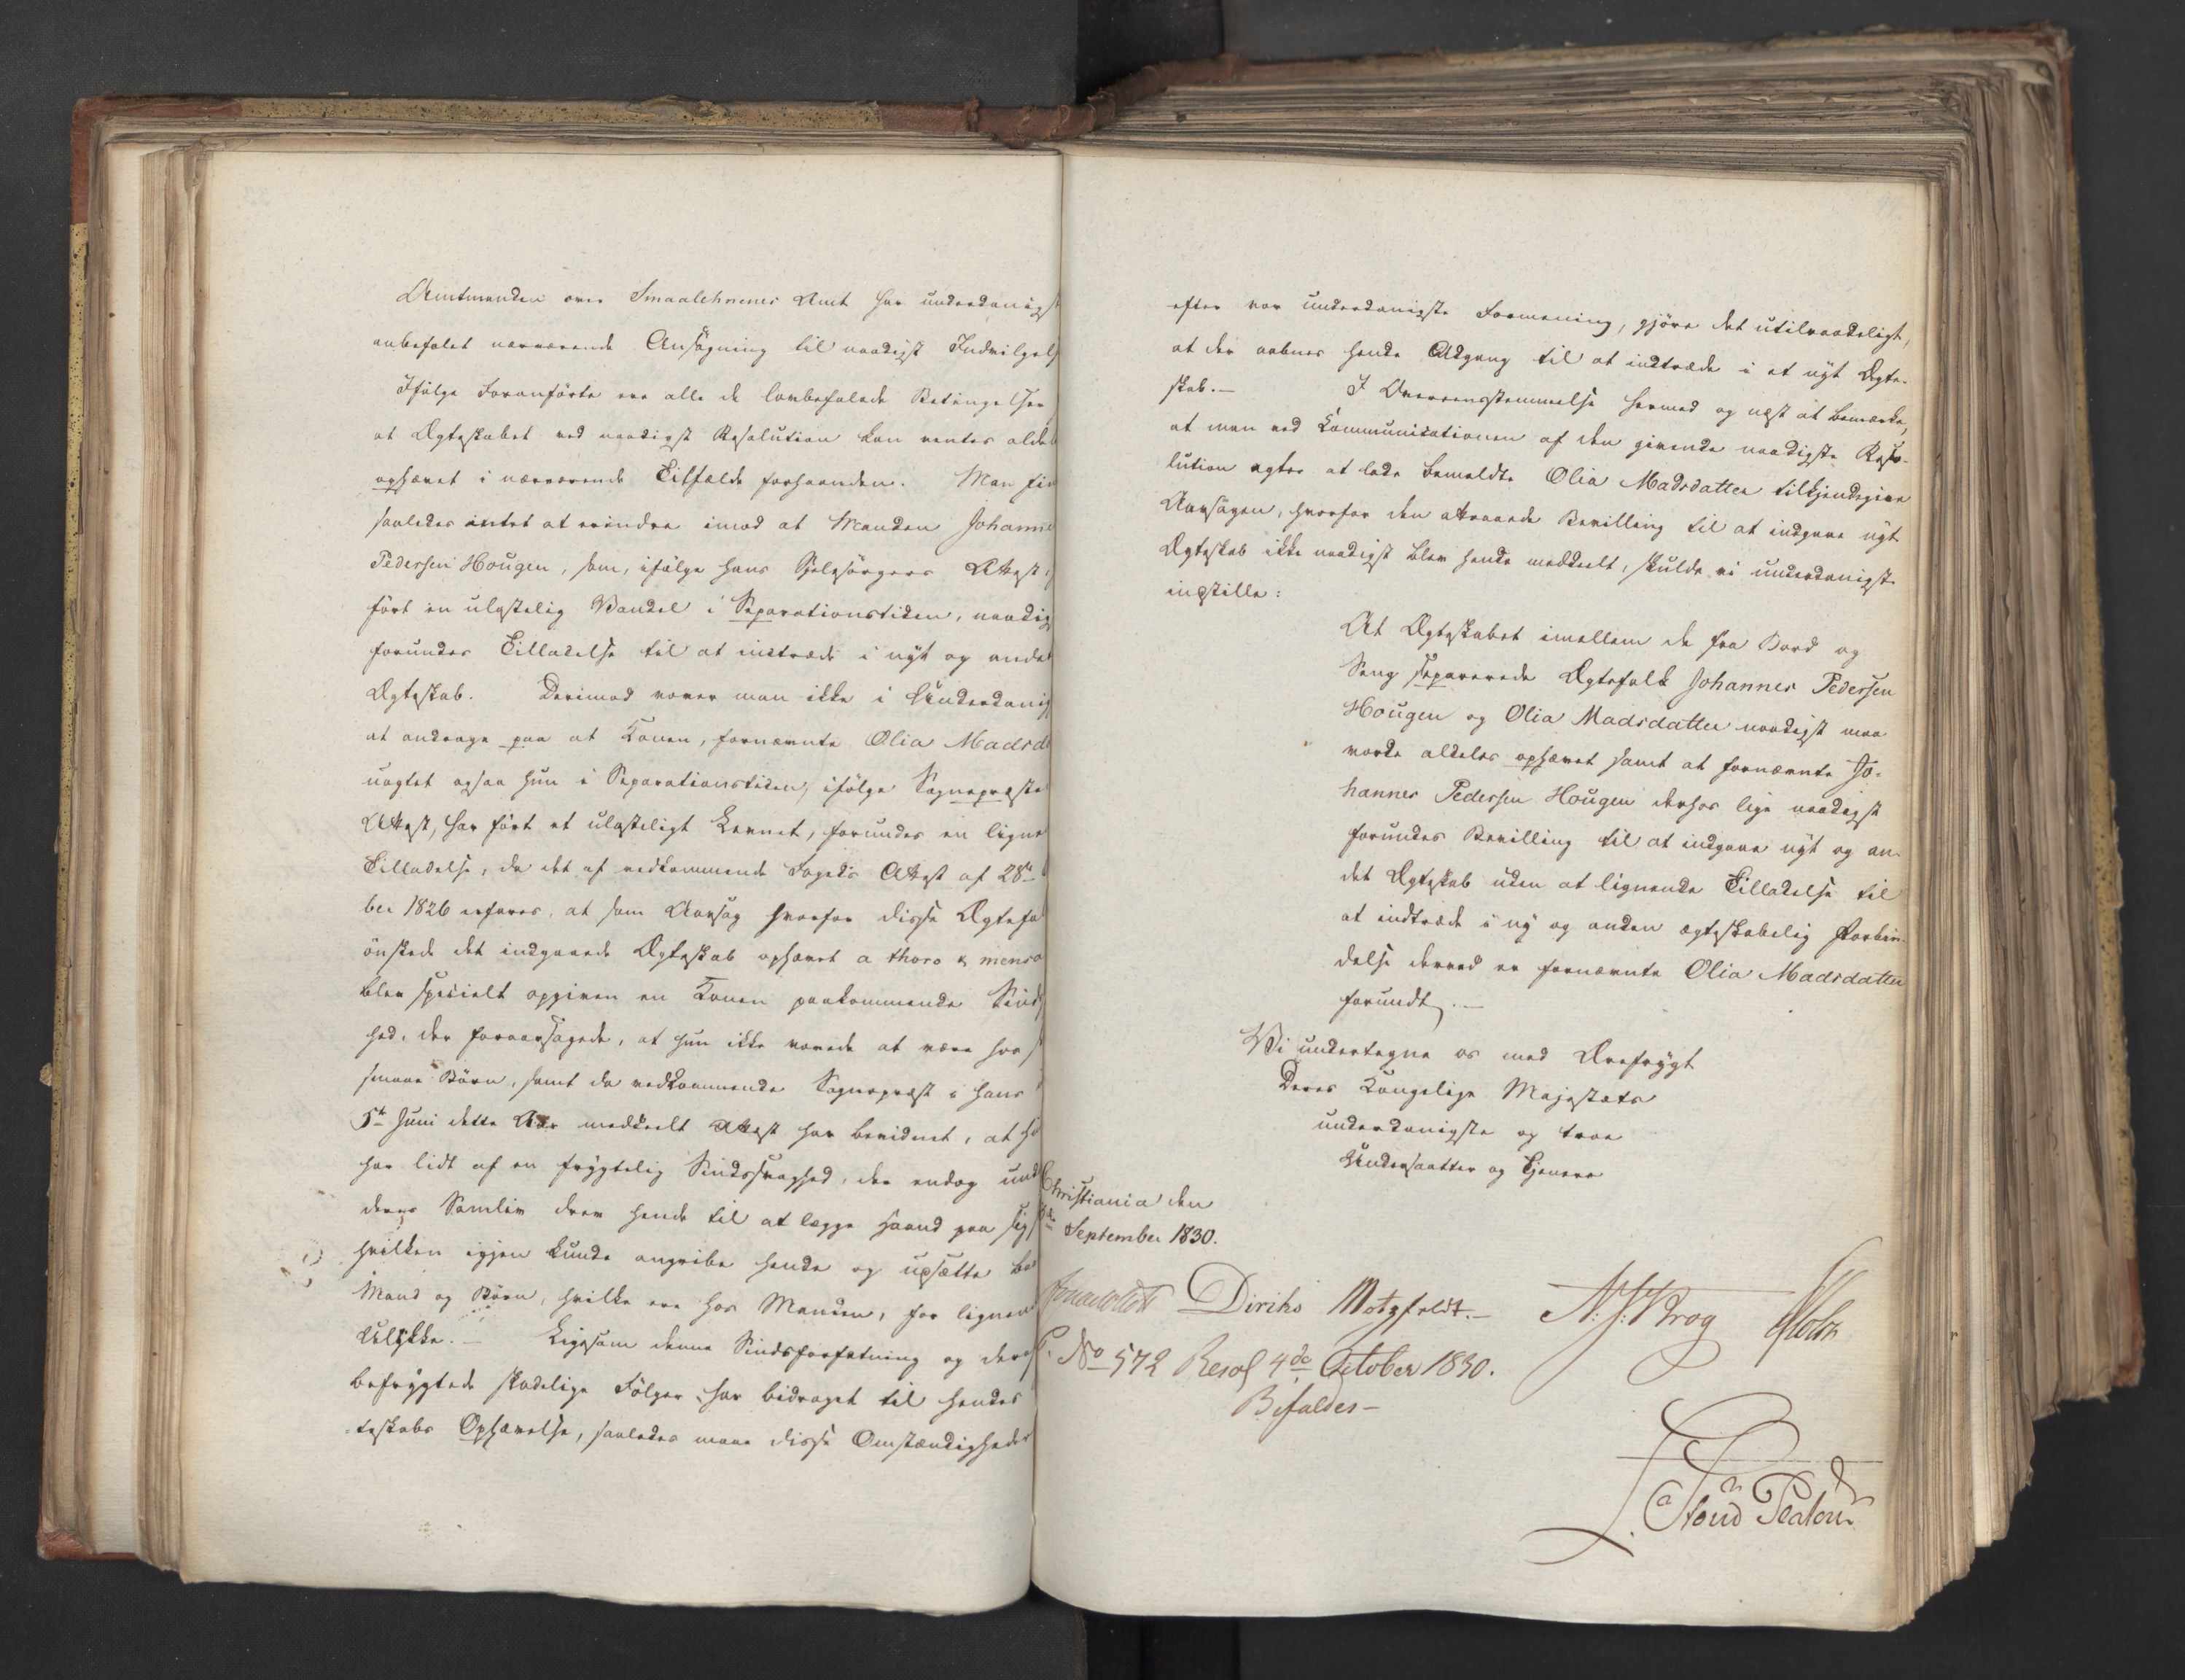 Amtmanden over Smaalehnenes Amt har underdanigst
anbefalet nærværende Ansøgning til naadigst Indvilgels
Ifølge Foranførte ere alle de lovbefalede Betingelser
at Ægteskabet ved naadigst Resolution kan ventes aldel
ophævet i nærværende Tilfælde forhaanden. Man fin
saaledes intet at erindre imod at Manden Johanne
Pedersen Hougen, som, ifølge hans Sjelesørgers Attest,
ført en ulastelig Vandel i Separationstiden, naadig
forundes Tilladelse til at indtræde i nyt og andet
Ægteskab. Derimod vover man ikke i Underdanig
at andrage paa at Konen, fornævnte Olia Madsd
uagtet ogsaa hun i Separationstiden, ifølge Sognepræste
Attest, har ført et ulasteligt Levnet, forundes en ligne
Tilladelse, da det af vedkommende Fogeds Attest af 28de
ber 1826 erfares, at som Aarsag hvorfor disse Ægtefo
ønskede det indgaaede Ægteskab ophævet a thoro & mensa
blev specielt opgiven en Konen paakommende Sinds
hed, der foraarsagede, at hun ikke vovede at være hos s
smaae Børn, samt da vedkommende Sognepræst i hans
5te Juni dette Aar meddeelt Attest har bevidnet, at h
har lidt af en frygtelig Sindssvaghed, der endog und
deres Samliv drev hende til at lægge Haand paa sig s
hvilken igjen kunde angribe hende og udsætte b
Mand og Børn, hvilke ere hos Manden, for lignend
Ulykke. – Ligesom denne Sindsforfatning og deraf
befrygtede skadelige Følger har bidraget til hendes
teskabs Ophævelse, saaledes maae disse Omstændigheder
efter vor underdanigste Formening, gjøre det utilraadeligt,
at der aabnes hende Adgang til at indtræde i et nyt Ægte-
skab. – I Overeensstemmelse hermed og næst at bemærke,
at man ved Communicationen af den givende naadigste Reso-
lution agter at lade bemeldte Olia Madsdatter tilkjendegive
Aarsagen, hvorfor den attraaede Bevilling til at indgaae nyt
Ægteskab ikke naadigst blev hende meddeelt, skulde vi underdanigst
indstille:
At Ægteskabet imellem de fra Bord og
Seng separerede Ægtefolk Johannes Pedersen
Hougen og Olia Madsdatter naadigst maa
vorde aldeles ophævet samt at fornævnte Jo-
hannes Pedersen Hougen derhos lige naadigst
forundes Bevilling til at indgaae nyt og an-
det Ægteskab uden at lignende Tilladelse til
at indtræde i ny og anden ægteskabelig Forbin-
delse derved er fornævnte Olia Madsdatter
forundt. –
Vi undertegne os med Ærefrygt
Deres Kongelige Majestæts
underdanigste og troe
Undersaatter og Tjenere
Christiania den
September 1830.
Diriks Motzfeldt. – Krog Holst
No 572 Resol 4de October 1830.
Bifaldes –